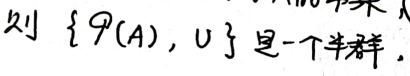 则 {𝒫(A), ∪} 是一个半群.